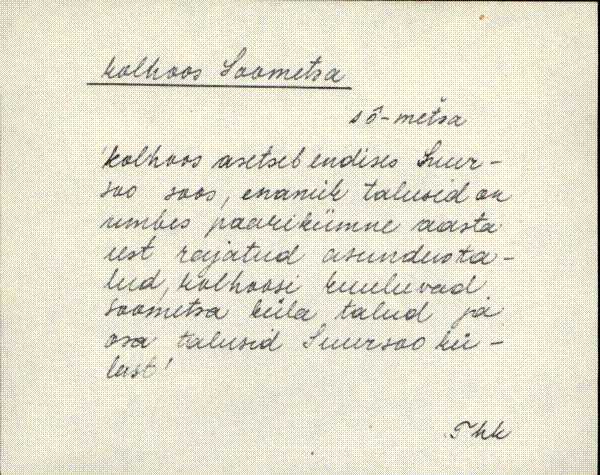 kolhoos Soometsa
sō-metsa
kolhoos asetseb endises Suur-
soo soos, enamik talusid on
umbes paarikümne aasta
eest rajatud asundusta-
lud, kolhoosi kuuluvad
soometsa küla talud ja
osa talusid Suursoo kü-
last!
Thk